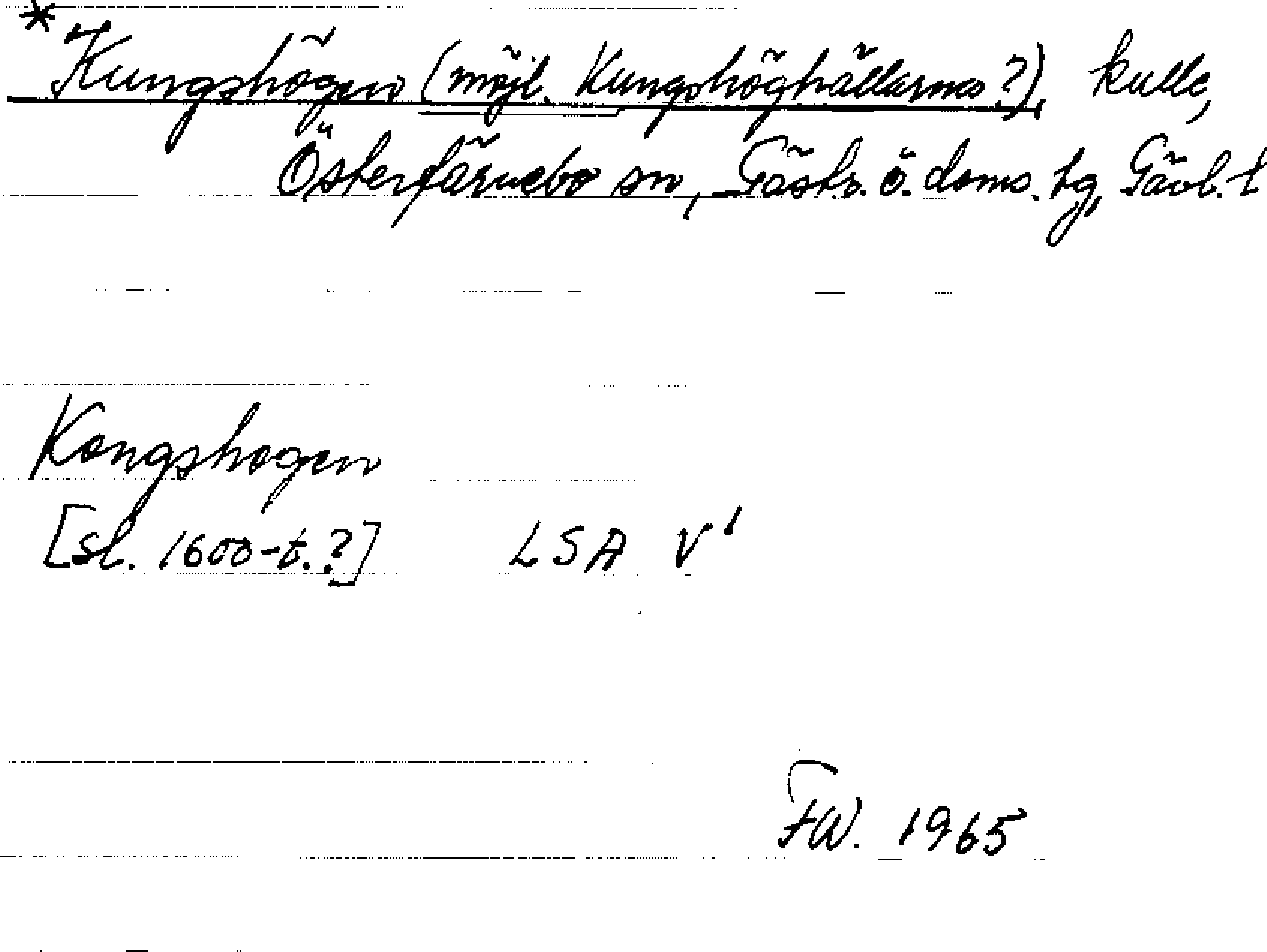 *Kungshögen (möjl. Kungshöghällarna?), kulle,
Österfärnebo sn, Gästr. ö. doms. tg, Gävl. l
Kongshogen
[sl. 1600-t.?] LSA V¹
FW. 1965